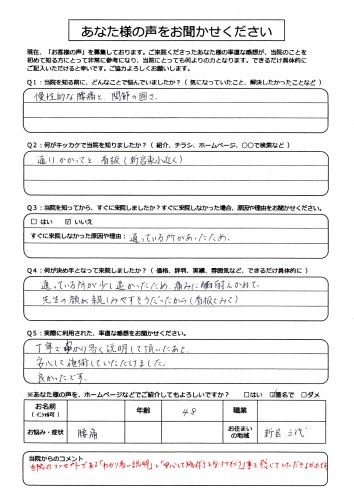 あなた様の声をお聞かせください
現在、「お客様の声」を募集しております。ご来院くださったあなた様の率直な感想が、当院のことを
初めて知る方にとって非常に参考になり、当院にとっても何よりの力となります。できるだけ具体的に
ご記入いただけると幸いです。ご協力よろしくお願いします。
Q1:当院を知る前に、どんなことで悩んでいましたか?(気になっていたこと、解決したかったことなど)
慢性的な腰痛と、関節の固さ。
Q2:何がキッカケで当院を知りましたか?(紹介、チラシ、ホームページ、〇〇で検索など)
通りかかってと、看板(新宮東小近く)
Q3:当院を知ってから、すぐに来院しましたか?すぐに来院しなかった場合、原因や理由をお聞かせください。
□ はい ☑ いいえ
すぐに来院しなかった原因や理由: 通っている所があったため。
Q4:何が決め手となって来院しましたか?(価格、評判、実績、雰囲気など、できるだけ具体的に)
通っている所が少し遠かったため、痛みに
先生の顔が話しやすそうだったから(看板とみて)
Q5:実際に利用された、率直な感想をお聞かせください。
丁寧で分かり易く説明して頂いたあと、
安心して施術していただけました。
良かったです。
※あなた様の声を、ホームページなどでご紹介してもよろしいですか? □はい ☑匿名で □ダメ
お名前 年齢 48 職業
お悩み・症状 腰痛 お住まいの地域
当院からのコメント
当院のコンセプトである「わかり易い説明」と「安心して施術をうけて